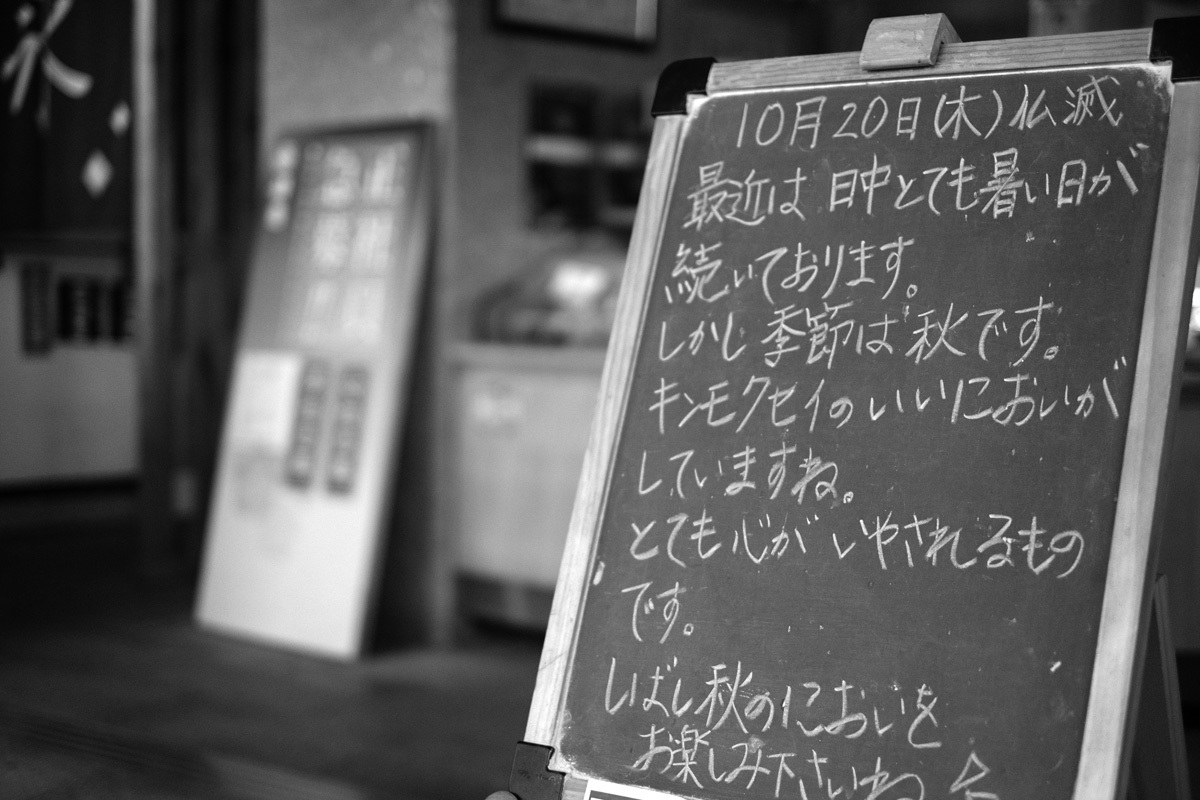 10月20日(木)仏滅
最近は 日中とても暑い日が
続いております。
しかし季節は秋です。
キンモクセイのいいにおいが
していますね。
とても心がいやされるもの
です。
しばし秋のにおいを
お楽しみ下さいね